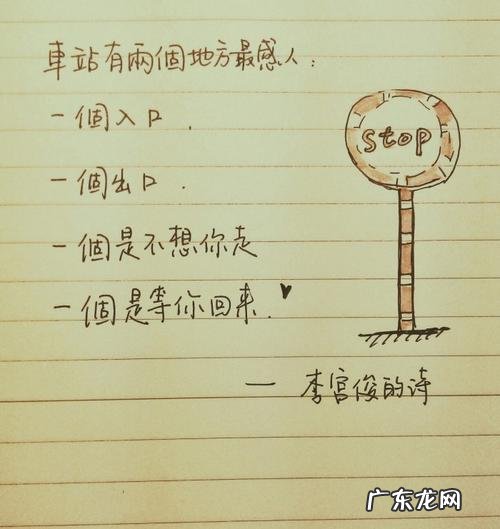 車站有兩個地方最感人：
一個入口．
一個出口．
一個是不想你走
一個是等你回来．
stop
— 李宫俊的诗
广东龙网